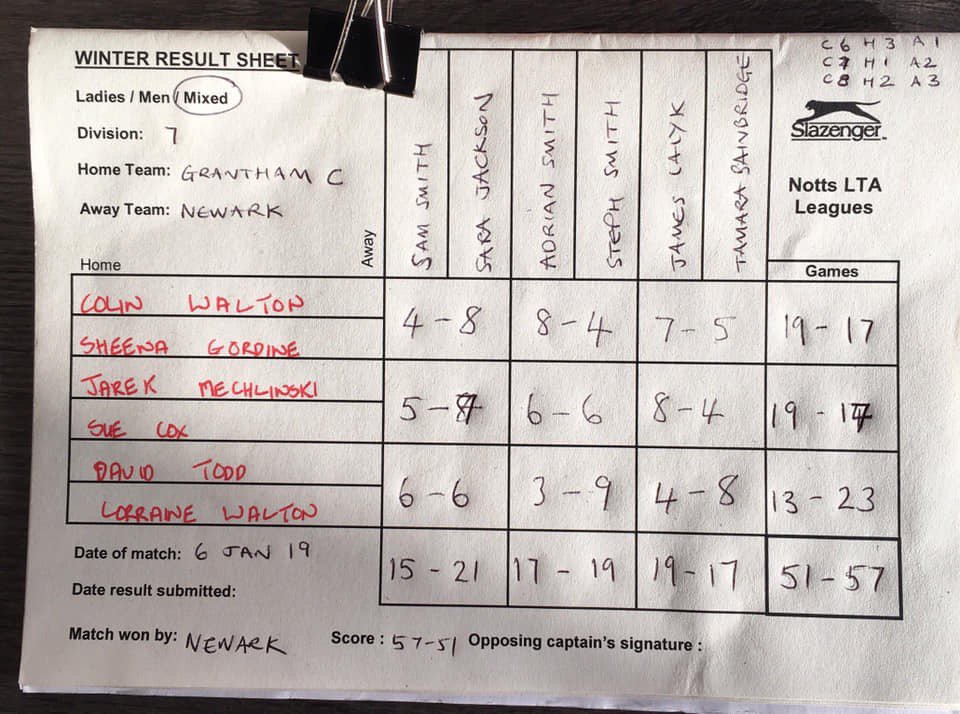 WINTER RESULT SHEET
C6 H3 A1
C7 H1 A2
C8 H2 A3
Ladies / Men / Mixed
Division: 7
Home Team: GRANTHAM C
Away Team: NEWARK
Slazenger
Notts LTA
Leagues
Away
SAM SMITH
SARA JACKSON
ADRIAN SMITH
STEPH SMITH
JAMES LALYK
TAMARA BAINBRIDGE
Home
Games
COLIN WALTON
SHEENA GORDINE
4 - 8 8 - 4 7 - 5 19 - 17
JAREK MECHLINSKI
SUE COX
5 - 7 6 - 6 8 - 4 19 - 17
DAVID TODD
LORRAINE WALTON
6 - 6 3 - 9 4 - 8 13 - 23
15 - 21 17 - 19 19 - 17 51 - 57
Date of match: 6 JAN 19
Date result submitted:
Match won by: NEWARK Score : 57-51 Opposing captain's signature :